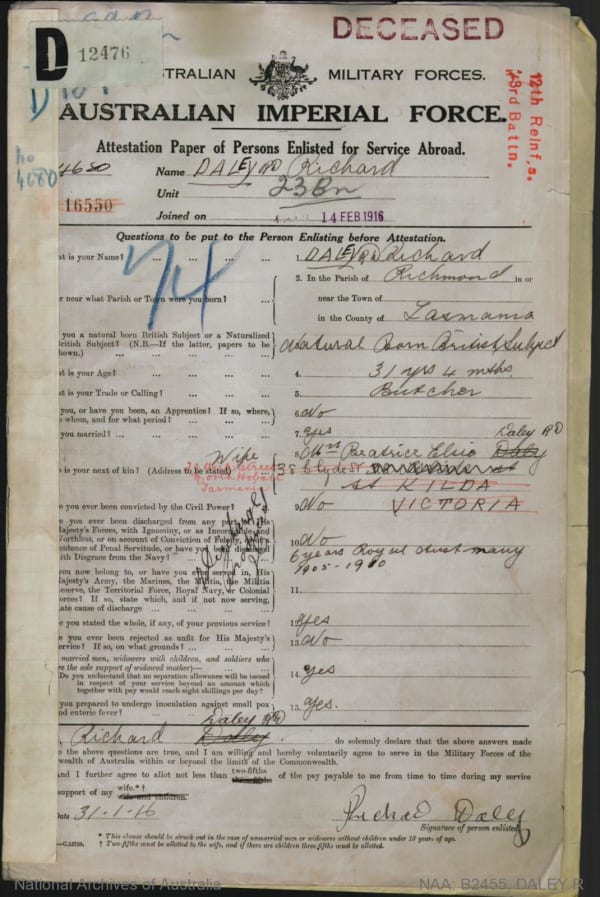 DECEASED
D 12476
STRALIAN MILITARY FORCES.
AUSTRALIAN IMPERIAL FORCE.
12th Reinf,s.
23rd Battn.
Attestation Paper of Persons Enlisted for Service Abroad.
no 4680
4680 Name DALEY RD Richard
16550 Unit 23Bn
Joined on 14 FEB 1916
Questions to be put to the Person Enlisting before Attestation.
74
at is your Name? ... ... ... 1. DALEY RD Richard
2. In the Parish of Richmond in or
r near what Parish or Town were you born? ... near the Town of
in the County of Tasmania
you a natural born British Subject or a Naturalized
British Subject? (N.B.—If the latter, papers to be Natural Born British Subject
hown.) ... ... ...
at is your Age? ... ... ... 4. 31 yrs 4 mths.
at is your Trade or Calling? ... ... 5. Butcher
you, or have you been, an Apprentice? If so, where, 6. No
o whom, and for what period? ... ...
you married? ... ... ... 7. yes Daley RD
Wife 8. Mrs Beatrice Elsie Daly
is your next of kin? (Address to be stated) 38 Clyde St
Street North Hobart Tasmania
St KILDA
e you ever been convicted by the Civil Power? 9. No VICTORIA
e you ever been discharged from any part of His
Majesty's Forces, with Ignominy, or as Incorrigible and
Worthless, or on account of Conviction of Felony, or of a 10. No
entence of Penal Servitude, or have you been dismissed
ith Disgrace from the Navy?
6 years Royal Aust Navy
1905-1910
you now belong to, or have you ever served in, His
Majesty's Army, the Marines, the Militia, the Militia
eserve, the Territorial Force, Royal Navy, or Colonial 11.
orces? If so, state which, and if not now serving,
ate cause of discharge ... ...
e you stated the whole, if any, of your previous service? 12. yes
e you ever been rejected as unfit for His Majesty's 13. No
service? If so, on what grounds? ... ...
married men, widowers with children, and soldiers who
re the sole support of widowed mother)—
Do you understand that no separation allowance will be issued 14. yes
in respect of your service beyond an amount which
together with pay would reach eight shillings per day?
you prepared to undergo inoculation against small pox 15. yes.
and enteric fever? ... ... ...
Daley RD
, Richard Daley do solemnly declare that the above answers made
o the above questions are true, and I am willing and hereby voluntarily agree to serve in the Military Forces of the
wealth of Australia within or beyond the limits of the Commonwealth.
And I further agree to allot not less than two-fifths three-fifths of the pay payable to me from time to time during my service
support of my wife.*† wife and children.
Date 31-1-16 Richard Daley
Signature of person enlisted.
* This clause should be struck out in the case of unmarried men or widowers without children under 18 years of age.
† Two-fifths must be allotted to the wife, and if there are children three-fifths must be allotted.
National Archives of Australia NAA: B2455, DALEY R